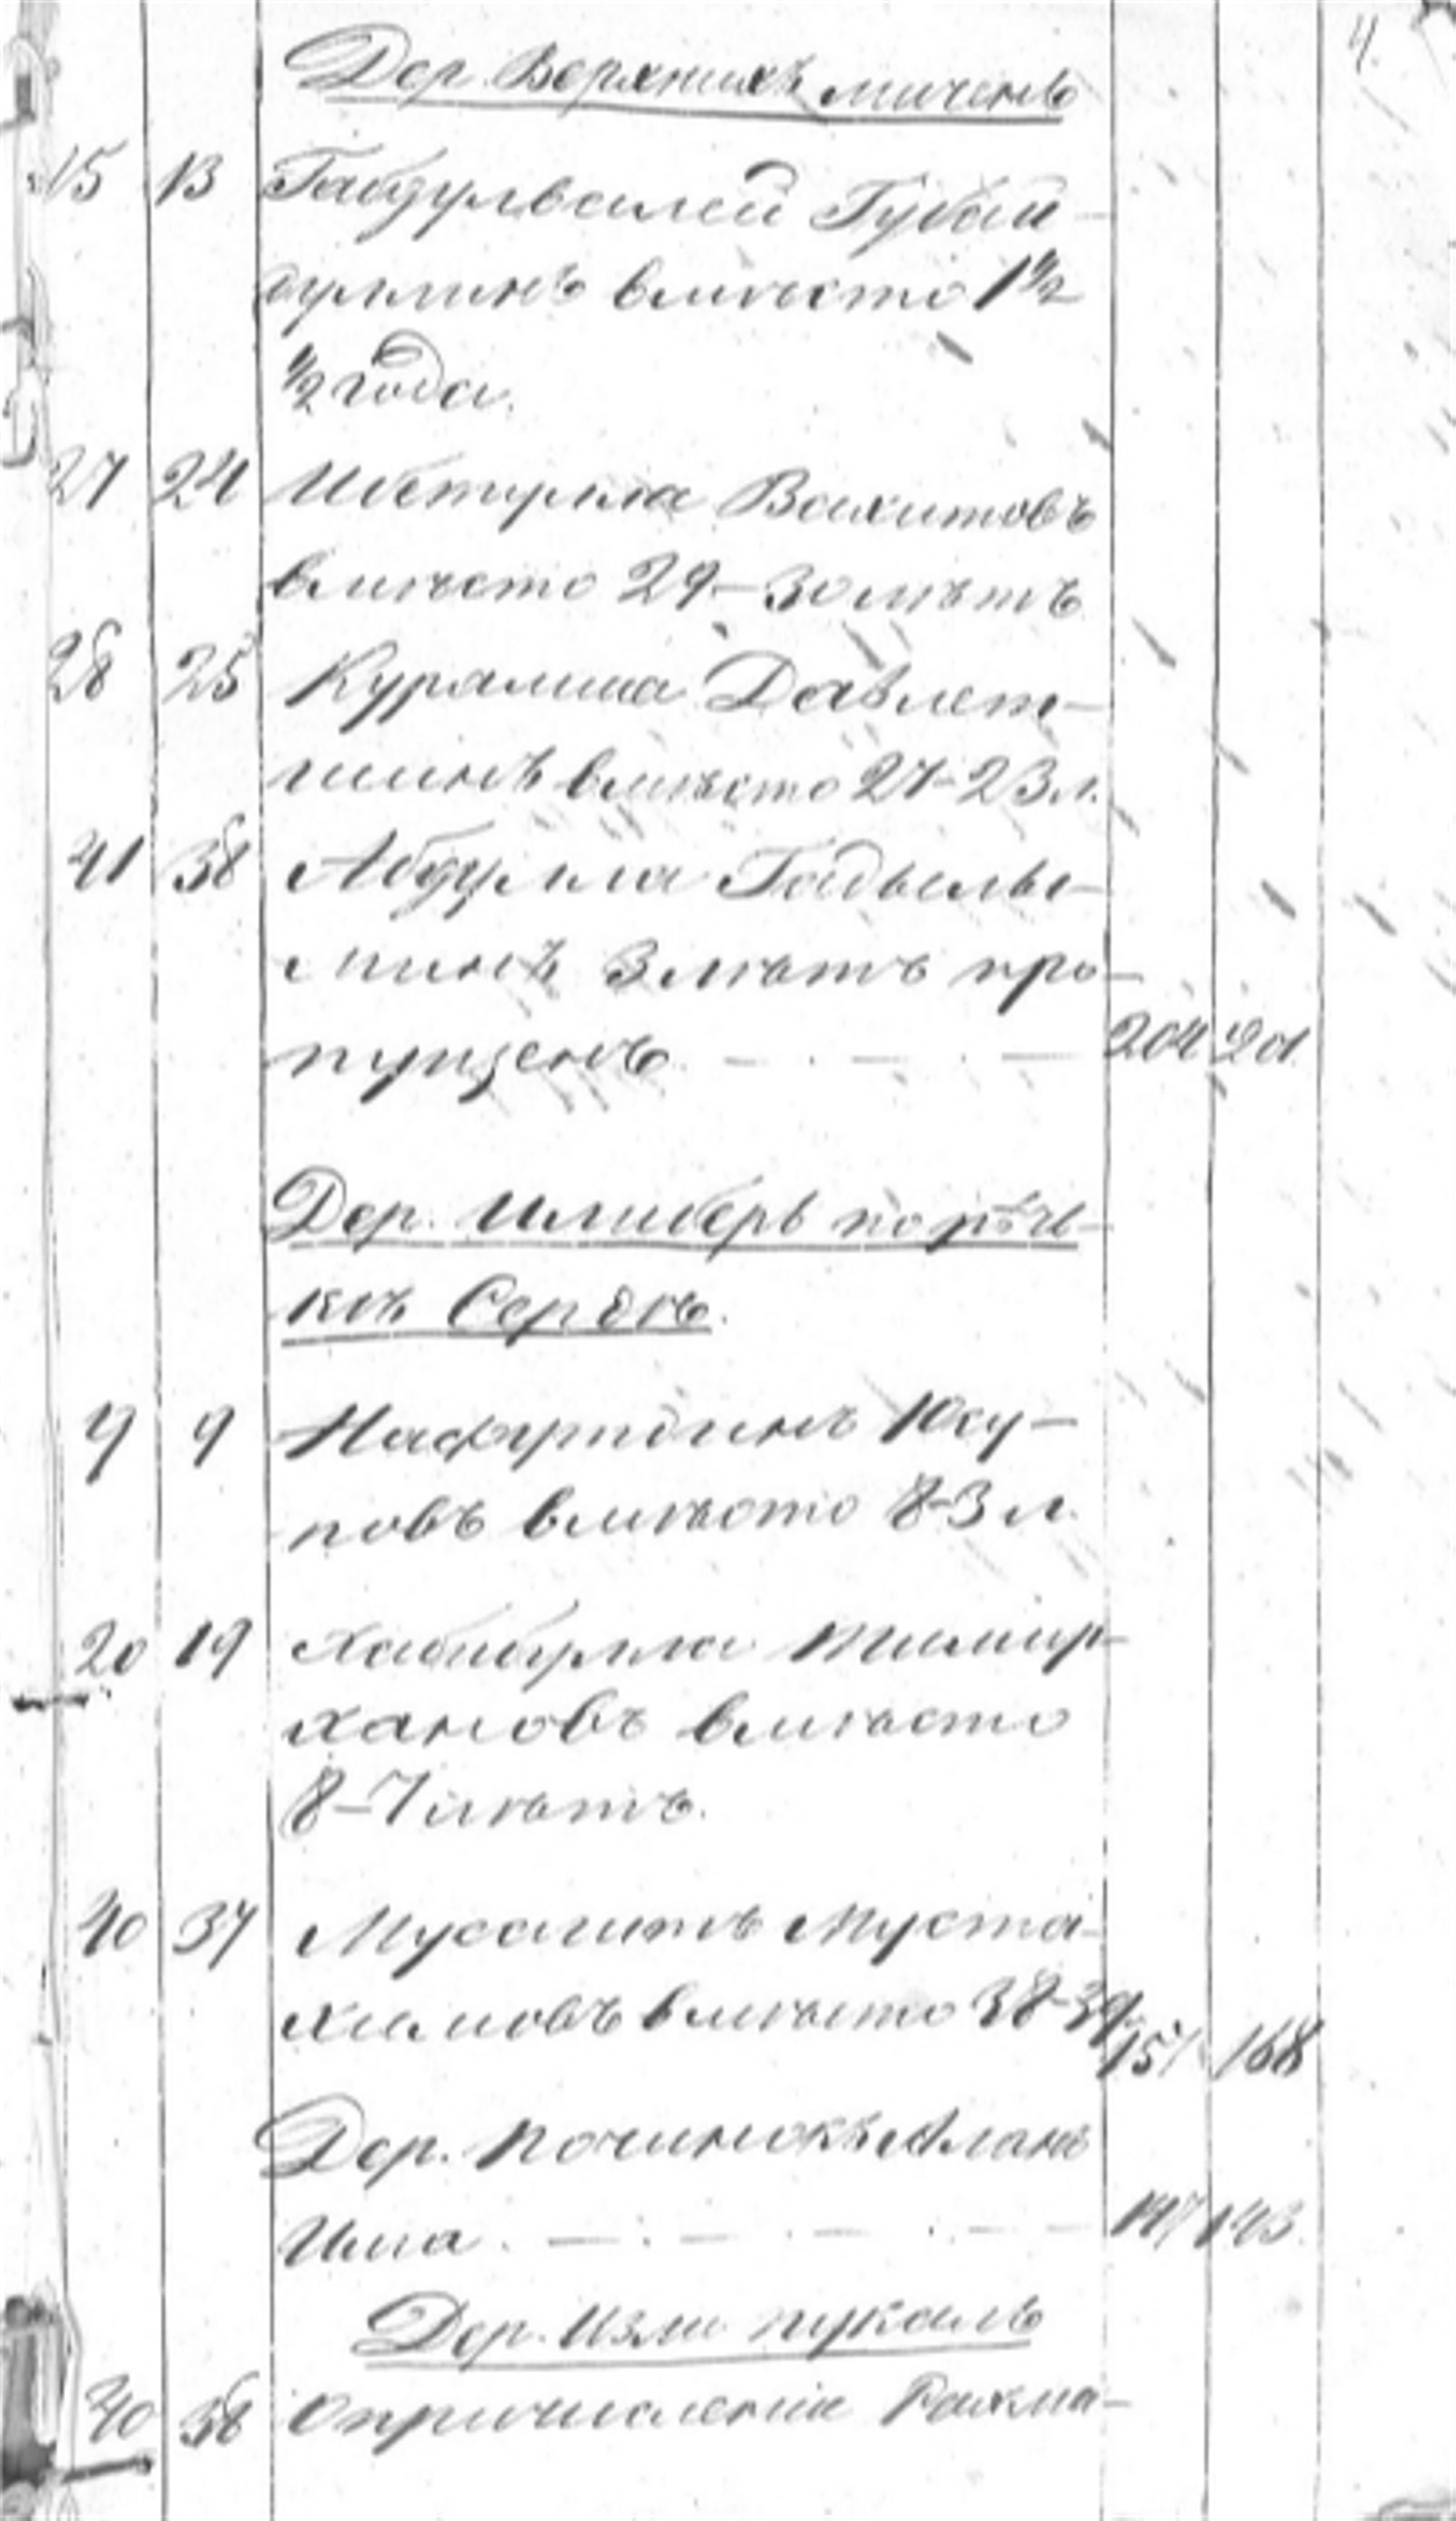 4.
Дер. Верхнихъ мичень
15 13 Габдулвалей Губай-
дуллинъ вмѣсто 1 1/2
1/2 года.
27 24 Ибетулла Вахитовъ
вмѣсто 29-30 лѣтъ
28 25 Курамша Давлет-
шинъ вмѣсто 27-23 л.
41 38 Абдулла Гадыльы-
минъ 3 лѣтъ про-
пущенъ 204
Дер. Илиберь по рѣч-
кѣ Серднь.
9 9 Юсу-
повъ вмѣсто 8-3 л.
20 19 Хабибулла Тимир-
хановъ вмѣсто
8-7 лѣтъ.
40 37 Мусалитъ Муста-
кимовъ вмѣсто 38-39
157 168
Дер. Починокъ Алань
Илга 147 143
Дер. Изли пукаль
40 38 О причисленіи Рахма-